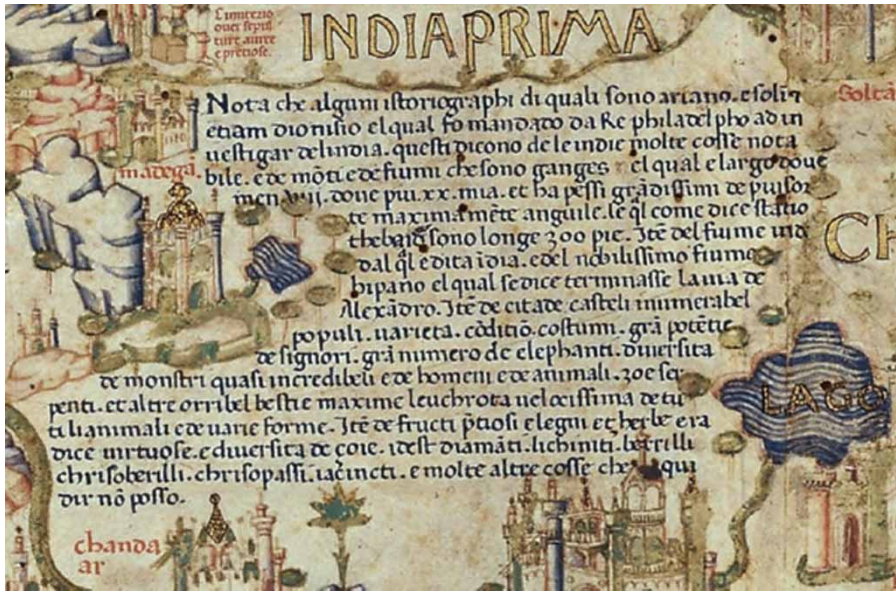 L imperio
ouer sepul
ture auree
e preciose.
INDIA PRIMA
Soltā
Nota che alguni istoriographi di quali sono ariano. e solin
etiam dionisio el qual fo mandado da Re philadelpho ad in
uestigar de lindia. questi dicono de le indie molte cosse nota
bile. e de mōti e de fiumi che sono ganges el qual e largo doue
men uiij. doue piu .xx. mia. et ha pessi grādissimi de puisor
te maxima mēte anguile. le q̄l come dice statio
thebaid sono longe 300 pie. Itē del fiume ind
dal q̄l e dita īdia. e del nobilissimo fiume
hipano el qual se dice terminasse la uia de
Alexādro. Itē de cita de casteli inumerabel
populi. uarieta. cōditiō. costumi. grā potētie
de signori. grā numero de elephanti. diuersita
de monstri quasi incredibeli e de homeni e de animali. zoe ser
penti. et altre orribel bestie maxime leuchrota uelocissima de tu
ti li animali e de uarie forme. Itē de fructi p̄tiosi e legni et herbe era
dice uirtuose. e diuersita de çoie. idest diamāti. lichiniti. berrilli
chrisoberilli. chrisopassi. iaçincti. e molte altre cosse che qui
dir nō posso.
madegā.
CH
LAGO
chanda
ar